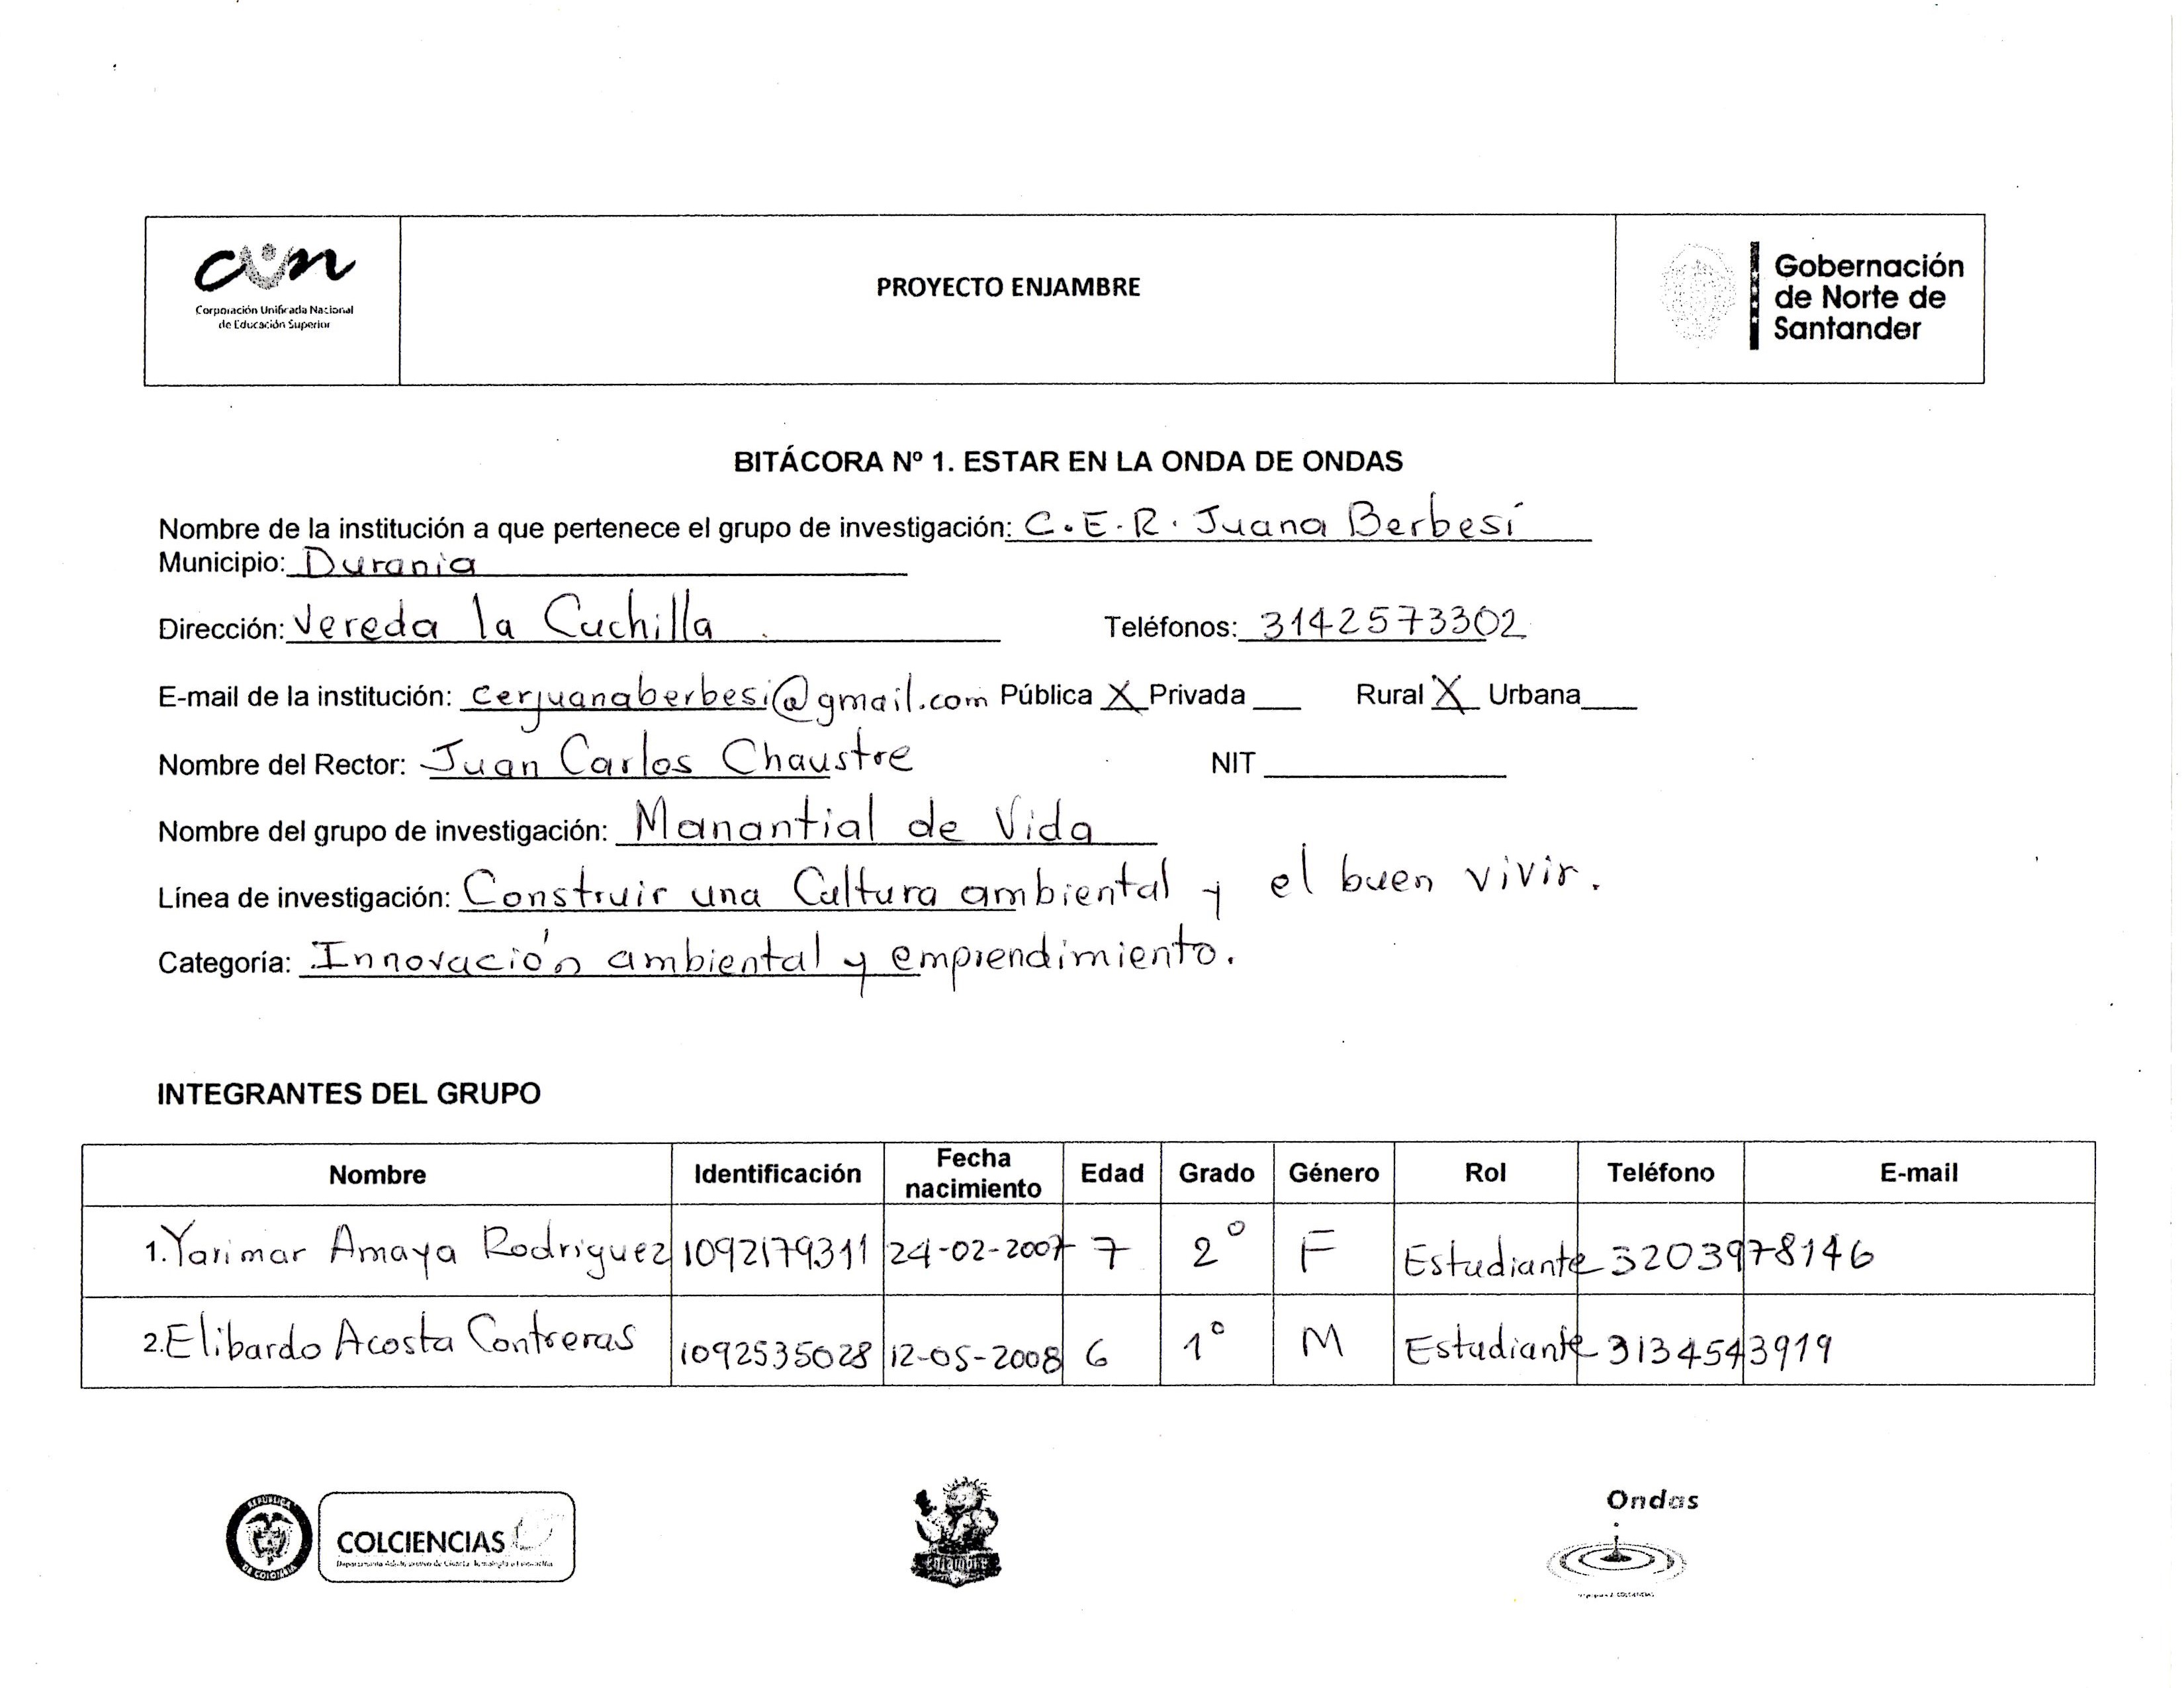 cun
Corporación Unificada Nacional
de Educación Superior
PROYECTO ENJAMBRE
Gobernación
de Norte de
Santander
BITÁCORA Nº 1. ESTAR EN LA ONDA DE ONDAS
Nombre de la institución a que pertenece el grupo de investigación: C.E.R. Juana Berbesí
Municipio: Durania
Dirección: Vereda la Cuchilla Teléfonos: 3142573302
E-mail de la institución: cerjuanaberbesi@gmail.com Pública X Privada ___ Rural X Urbana ___
Nombre del Rector: Juan Carlos Chaustre NIT ___
Nombre del grupo de investigación: Manantial de Vida
Línea de investigación: Construir una Cultura ambiental y el buen vivir.
Categoría: Innovación ambiental y emprendimiento.
INTEGRANTES DEL GRUPO
Nombre Identificación Fecha nacimiento Edad Grado Género Rol Teléfono E-mail
1. Yarimar Amaya Rodriguez 1092179311 24-02-2007 7 2º F Estudiante 3203978146
2. Elibardo Acosta Contreras 1092535028 12-05-2008 6 1º M Estudiante 3134543919
REPUBLICA DE COLOMBIA
COLCIENCIAS
Enjambre
Ondas